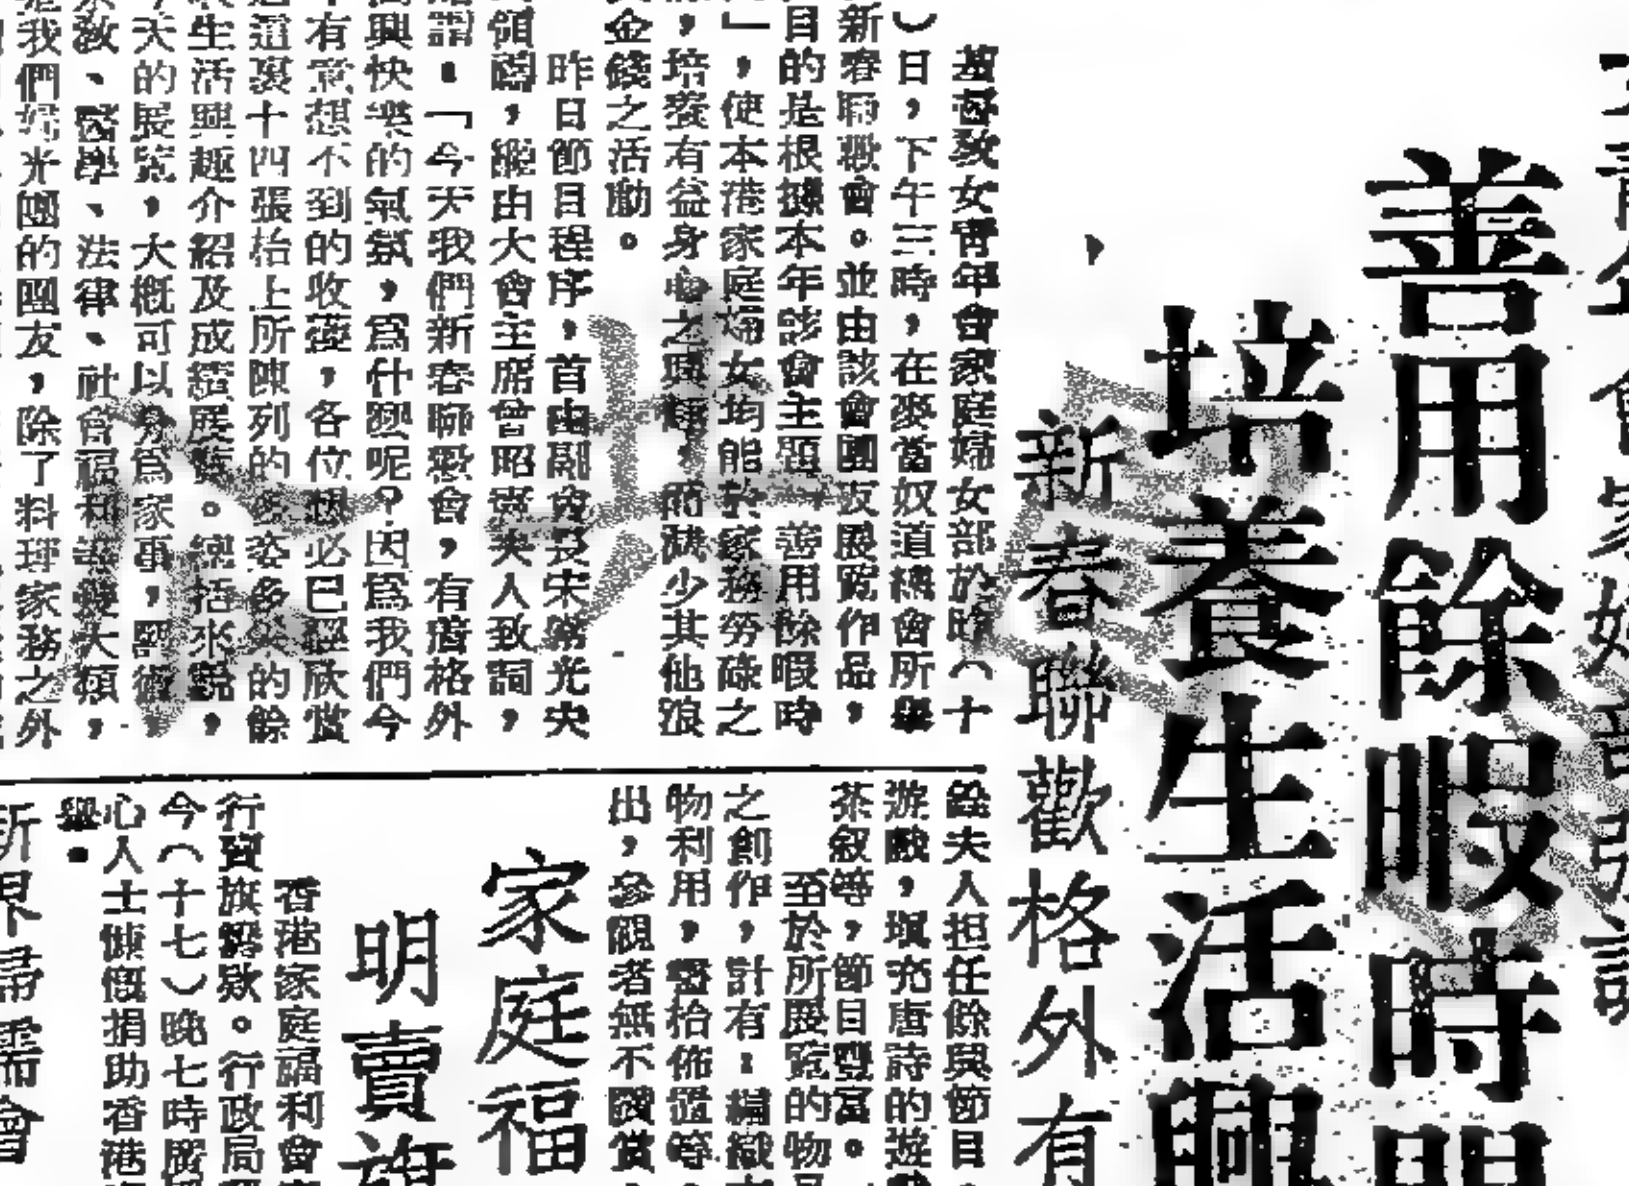 善用餘暇時間
培養生活興
新春聯歡格外有
基督教女青年會家庭婦女部於昨(十
)日,下午三時,在麥當奴道禮會所舉
新春聯歡會。並由該會團友展覽作品,
目的是根據本年該會主題「善用餘暇時
」,使本港家庭婦女均能於家務勞碌之
,培養有益身心之興趣,而減少其他浪
金錢之活動。
昨日節目程序,首由副會長宋常光夫
領禱,繼由大會主席曾昭森夫人致詞,
謂:「今天我們新春聯歡會,有着格外
興快樂的氣氛,為什麼呢?因為我們今
有意想不到的收穫,各位想必已經欣賞
這裏十四張枱上所陳列的多姿多采的餘
生活興趣介紹及成績展覽。總括來說,
天的展覽,大概可以分為家事,藝術,
教、醫學、法律、社會福利等幾大類,
我們婦光團的團友,除了料理家務之外
銓夫人担任餘興節目,
遊戲,填充唐詩的遊
茶敘等,節目豐富。
至於所展覽的物
之創作,計有:編織
物利用,餐枱佈置等
出,參觀者無不讚賞
家庭福
明賣旗
香港家庭福利會
行賣旗籌欵。行政局
今(十七)晚七時廣
心人士慷慨捐助香港
舉。